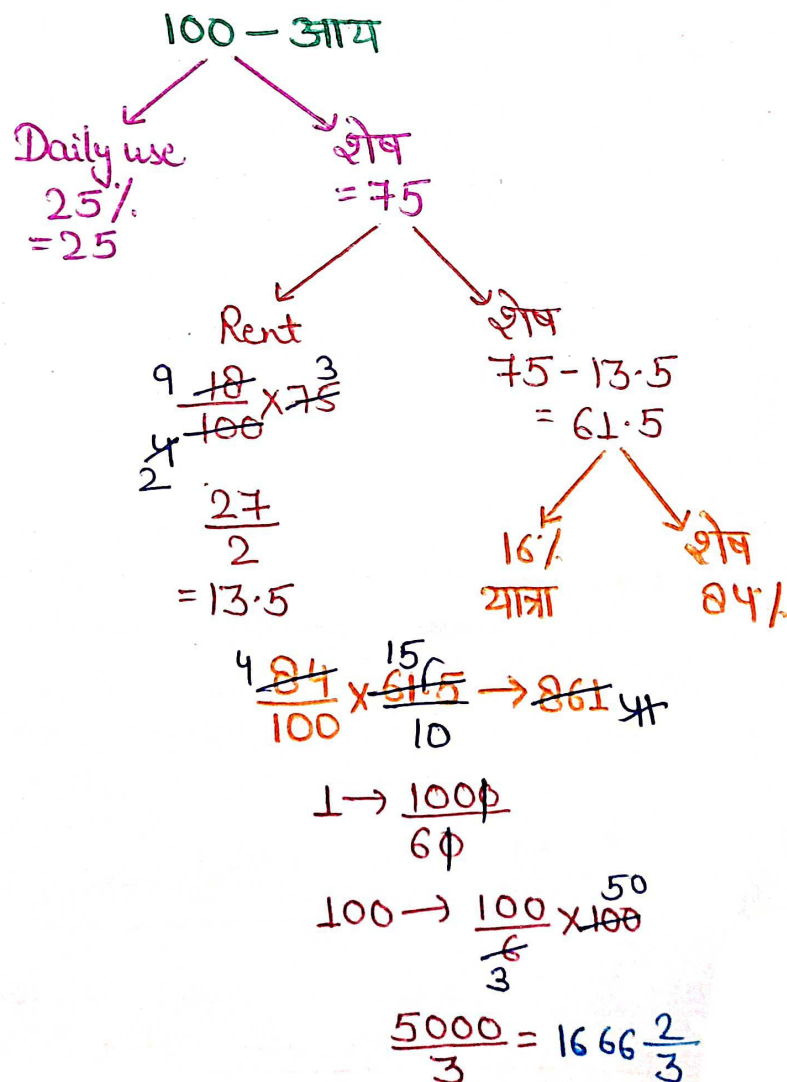 100 - आय
Daily use
25%
=25
शेष
=75
Rent
9 18/100 × 75 3
4
2
27/2
=13.5
शेष
75-13.5
= 61.5
16%
यात्रा
शेष
84%
4 84/100 × 615/10 15 → 861 41
1 → 1000/60
100 → 100/6 × 100 50
3
5000/3 = 1666 2/3